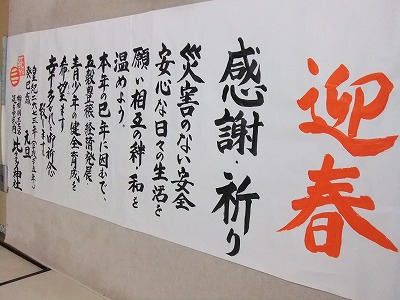 迎春
感謝・祈り
災害のない安全
安心な日々の生活を
願い相互の絆・和を
温めよう。
本年の巳年に因みで、
五穀豊穣・経済発展・
青少年の健全育成を
希望します
幸多かれと御祈念
致します。